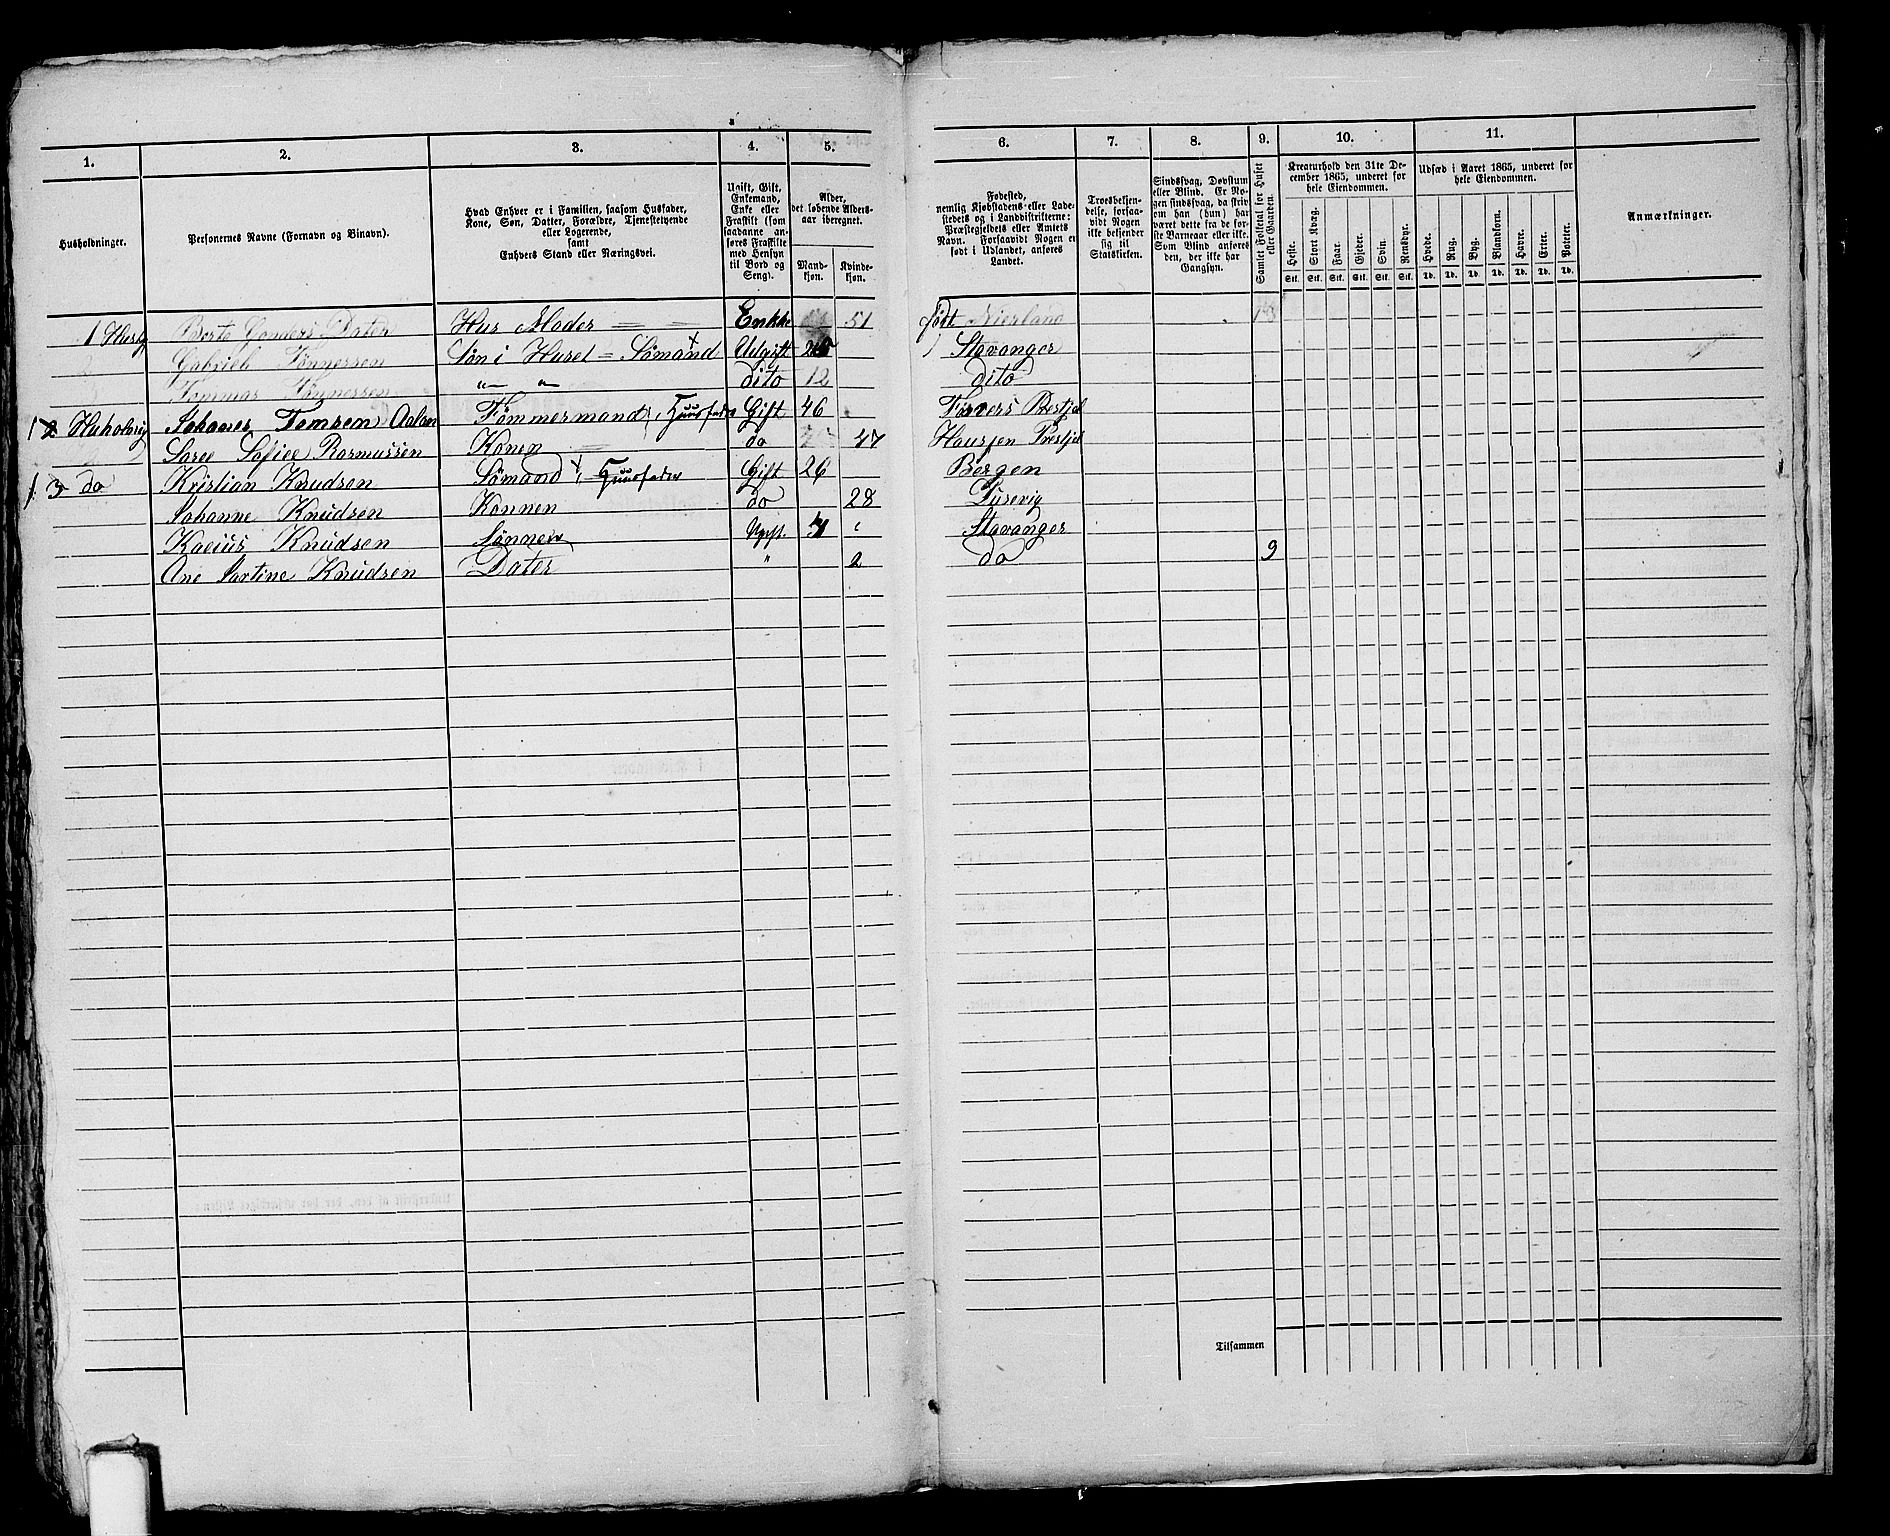 1. 2. 3. 4. 5. 6. 7. 8. 9. 10. 11.
Husholdninger.
Personernes Navne (Fornavn og Binavn).
Hvad Enhver er i Familien, saasom Husfader, Kone, Søn, Datter, Forældre, Tjenestetyende eller Logerende, samt Enhvers Stand eller Næringsvei.
Ugift, Gift, Enkemand, Enke eller Fraskilt (som saadanne anføres Fraskilte med Hensyn til Bord og Seng).
Alder, det løbende Aldersaar iberegnet.
Mandkjøn. Kvindekjøn.
Fødested, nemlig Kjøbstadens- eller Ladestedets og i Landdistrikterne: Præstegjeldets eller Amtets Navn. Forsaavidt Nogen er født i Udlandet, anføres Landet.
Troesbekjendelse, forsaavidt Nogen ikke bekjender sig til Statskirken.
Sindssvag, Døvstum eller Blind. Er Nogen sindssvag, da skriv om han (hun) har været dette fra de første Barneaar eller ikke. Som Blind anføres den, der ikke har Gangsyn.
Samlet Folketal for Huset eller Gaarden.
Kreaturhold den 31te December 1865, underet for hele Eiendommen.
Heste. Stort Kvæg. Faar. Gjeder. Svin. Rensdyr.
Stk. Stk. Stk. Stk. Stk. Stk.
Udsæd i Aaret 1865, underet for hele Eiendommen.
Hvede. Rug. Byg. Blandkorn. Havre. Erter. Poteter.
Td. Td. Td. Td. Td. Td. Td.
Anmærkninger.
1 Berte Dater Hus Moder = = Enkke 51 født
Gabrieh Tønnessen Søn i Huset = Sømand Udgift Stavanger
Tønnessen " " dito 12 dito
Johanes Tomsen Tømmermand, Huusfader Gift 46 Præstjel
Sofiee Rasmussen Konen do 47 Prestjel
3 do Kristian Knudsen Sømand, Huusfader Gift 26 Bergen
Johanne Knudsen Konnen do 28
Knudsen Sønnen Ugift. Stavanger
Ane Knudsen Dater " 2 do 9
Tilsammen